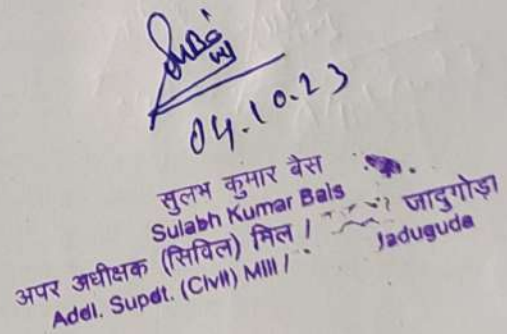 04.10.23
सुलभ कुमार वैस
Sulabh Kumar Bais
अपर अधीक्षक (सिविल) मिल / जादुगोड़ा
Addl. Supdt. (Civil) Mill / Jaduguda